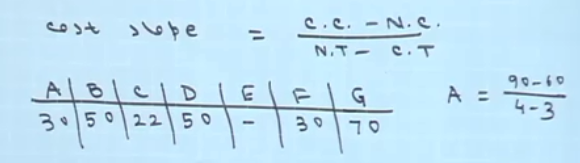 cost slope = C.C. - N.C. / N.T - C.T
A B C D E F G
30 50 22 50 - 30 70
A = 90-60 / 4-3